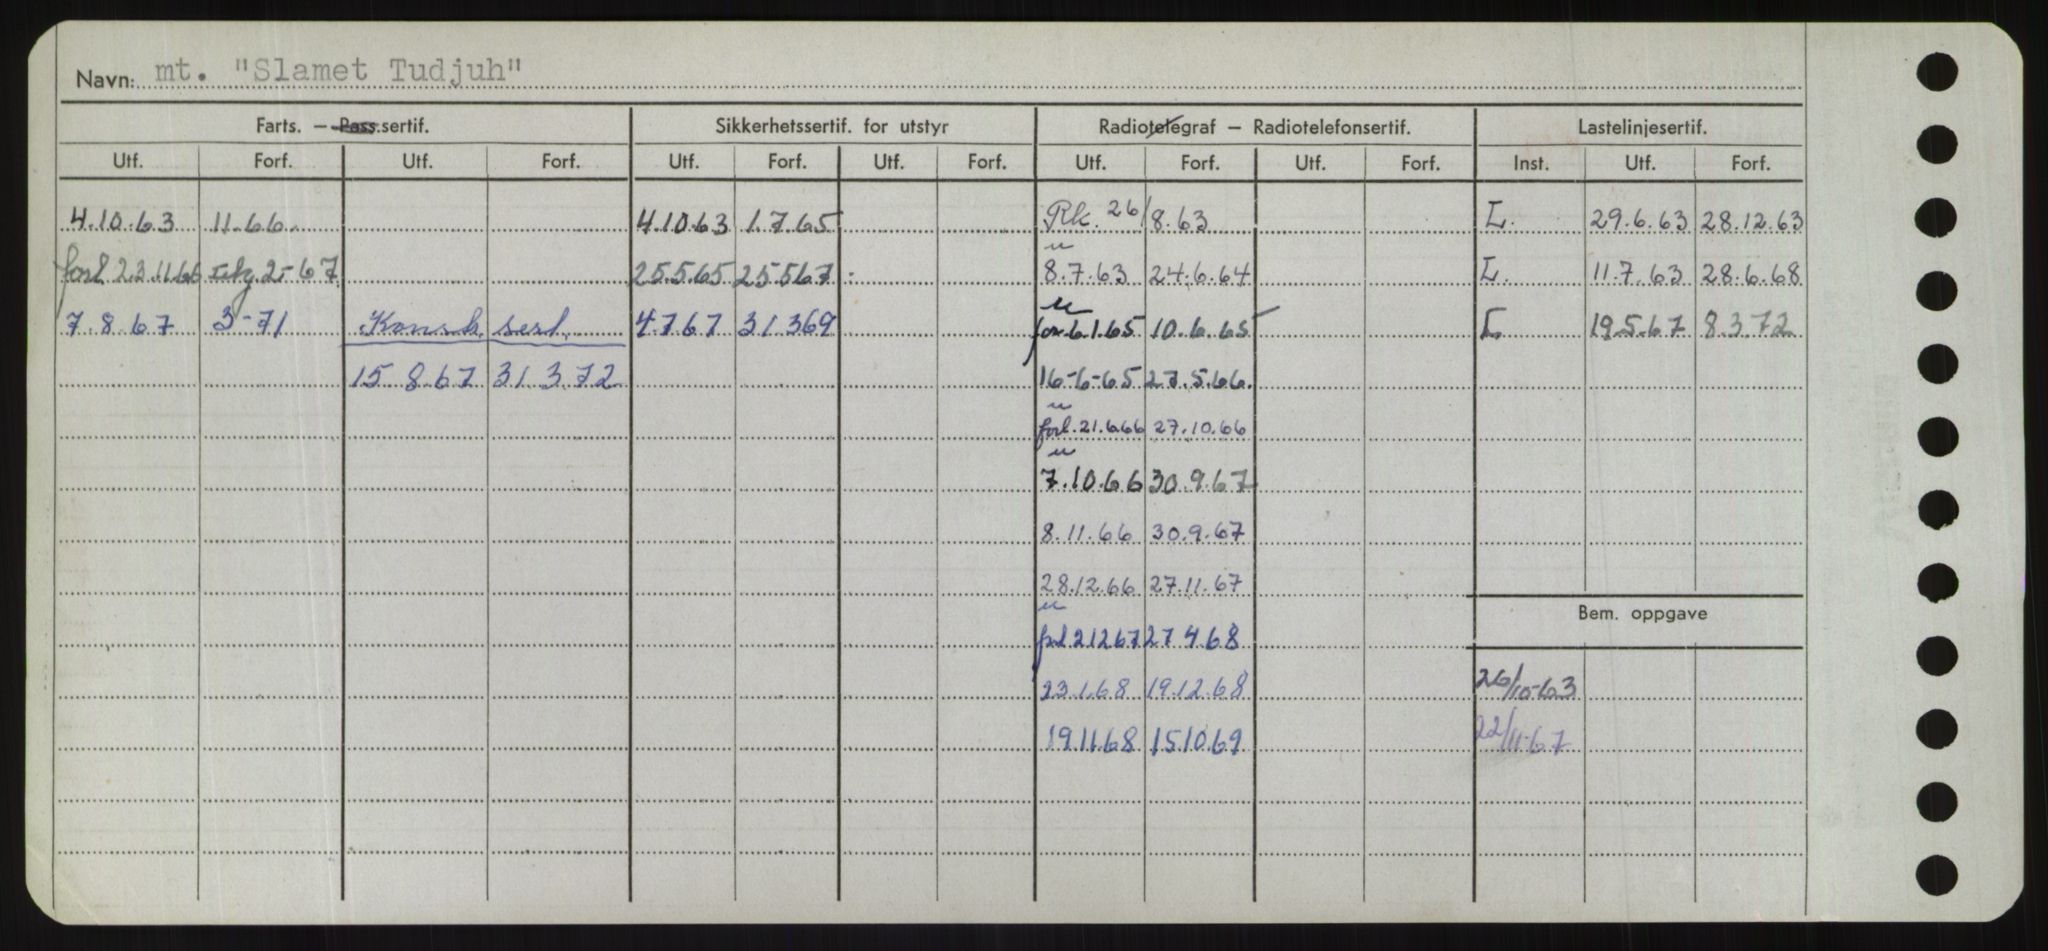 Navn: mt. "Slamet Tudjuh"
Farts. — Pass.sertif. Sikkerhetssertif. for utstyr Radiotelegraf — Radiotelefonsertif. Lastelinjesertif.
Utf. Forf. Utf. Forf. Utf. Forf. Utf. Forf. Utf. Forf. Utf. Forf. Inst. Utf. Forf.
4.10.63 11.66. 4.10.63 1.7.65 Rk. 26/8.63 L. 29.6.63 28.12.63
forl 23.11.66 2-67 25.5.65 25.5.67 8.7.63 24.6.64 L. 11.7.63 28.6.68
7.8.67 3-71 Konstr. sert. 4.7.67 31.3.69 6.1.65 10.6.65 L 19.5.67 8.3.72
15.8.67 31.3.72 16-6-65 27.5.66.
forl. 21.6.66 27.10.66
7.10.66 30.9.67
8.11.66 30.9.67
28.12.66 27.11.67
Bem. oppgave
forl 21.2.67 27.4.68
23.1.68 19.12.68 26/10-63
19.11.68 15.10.69 22/11-67